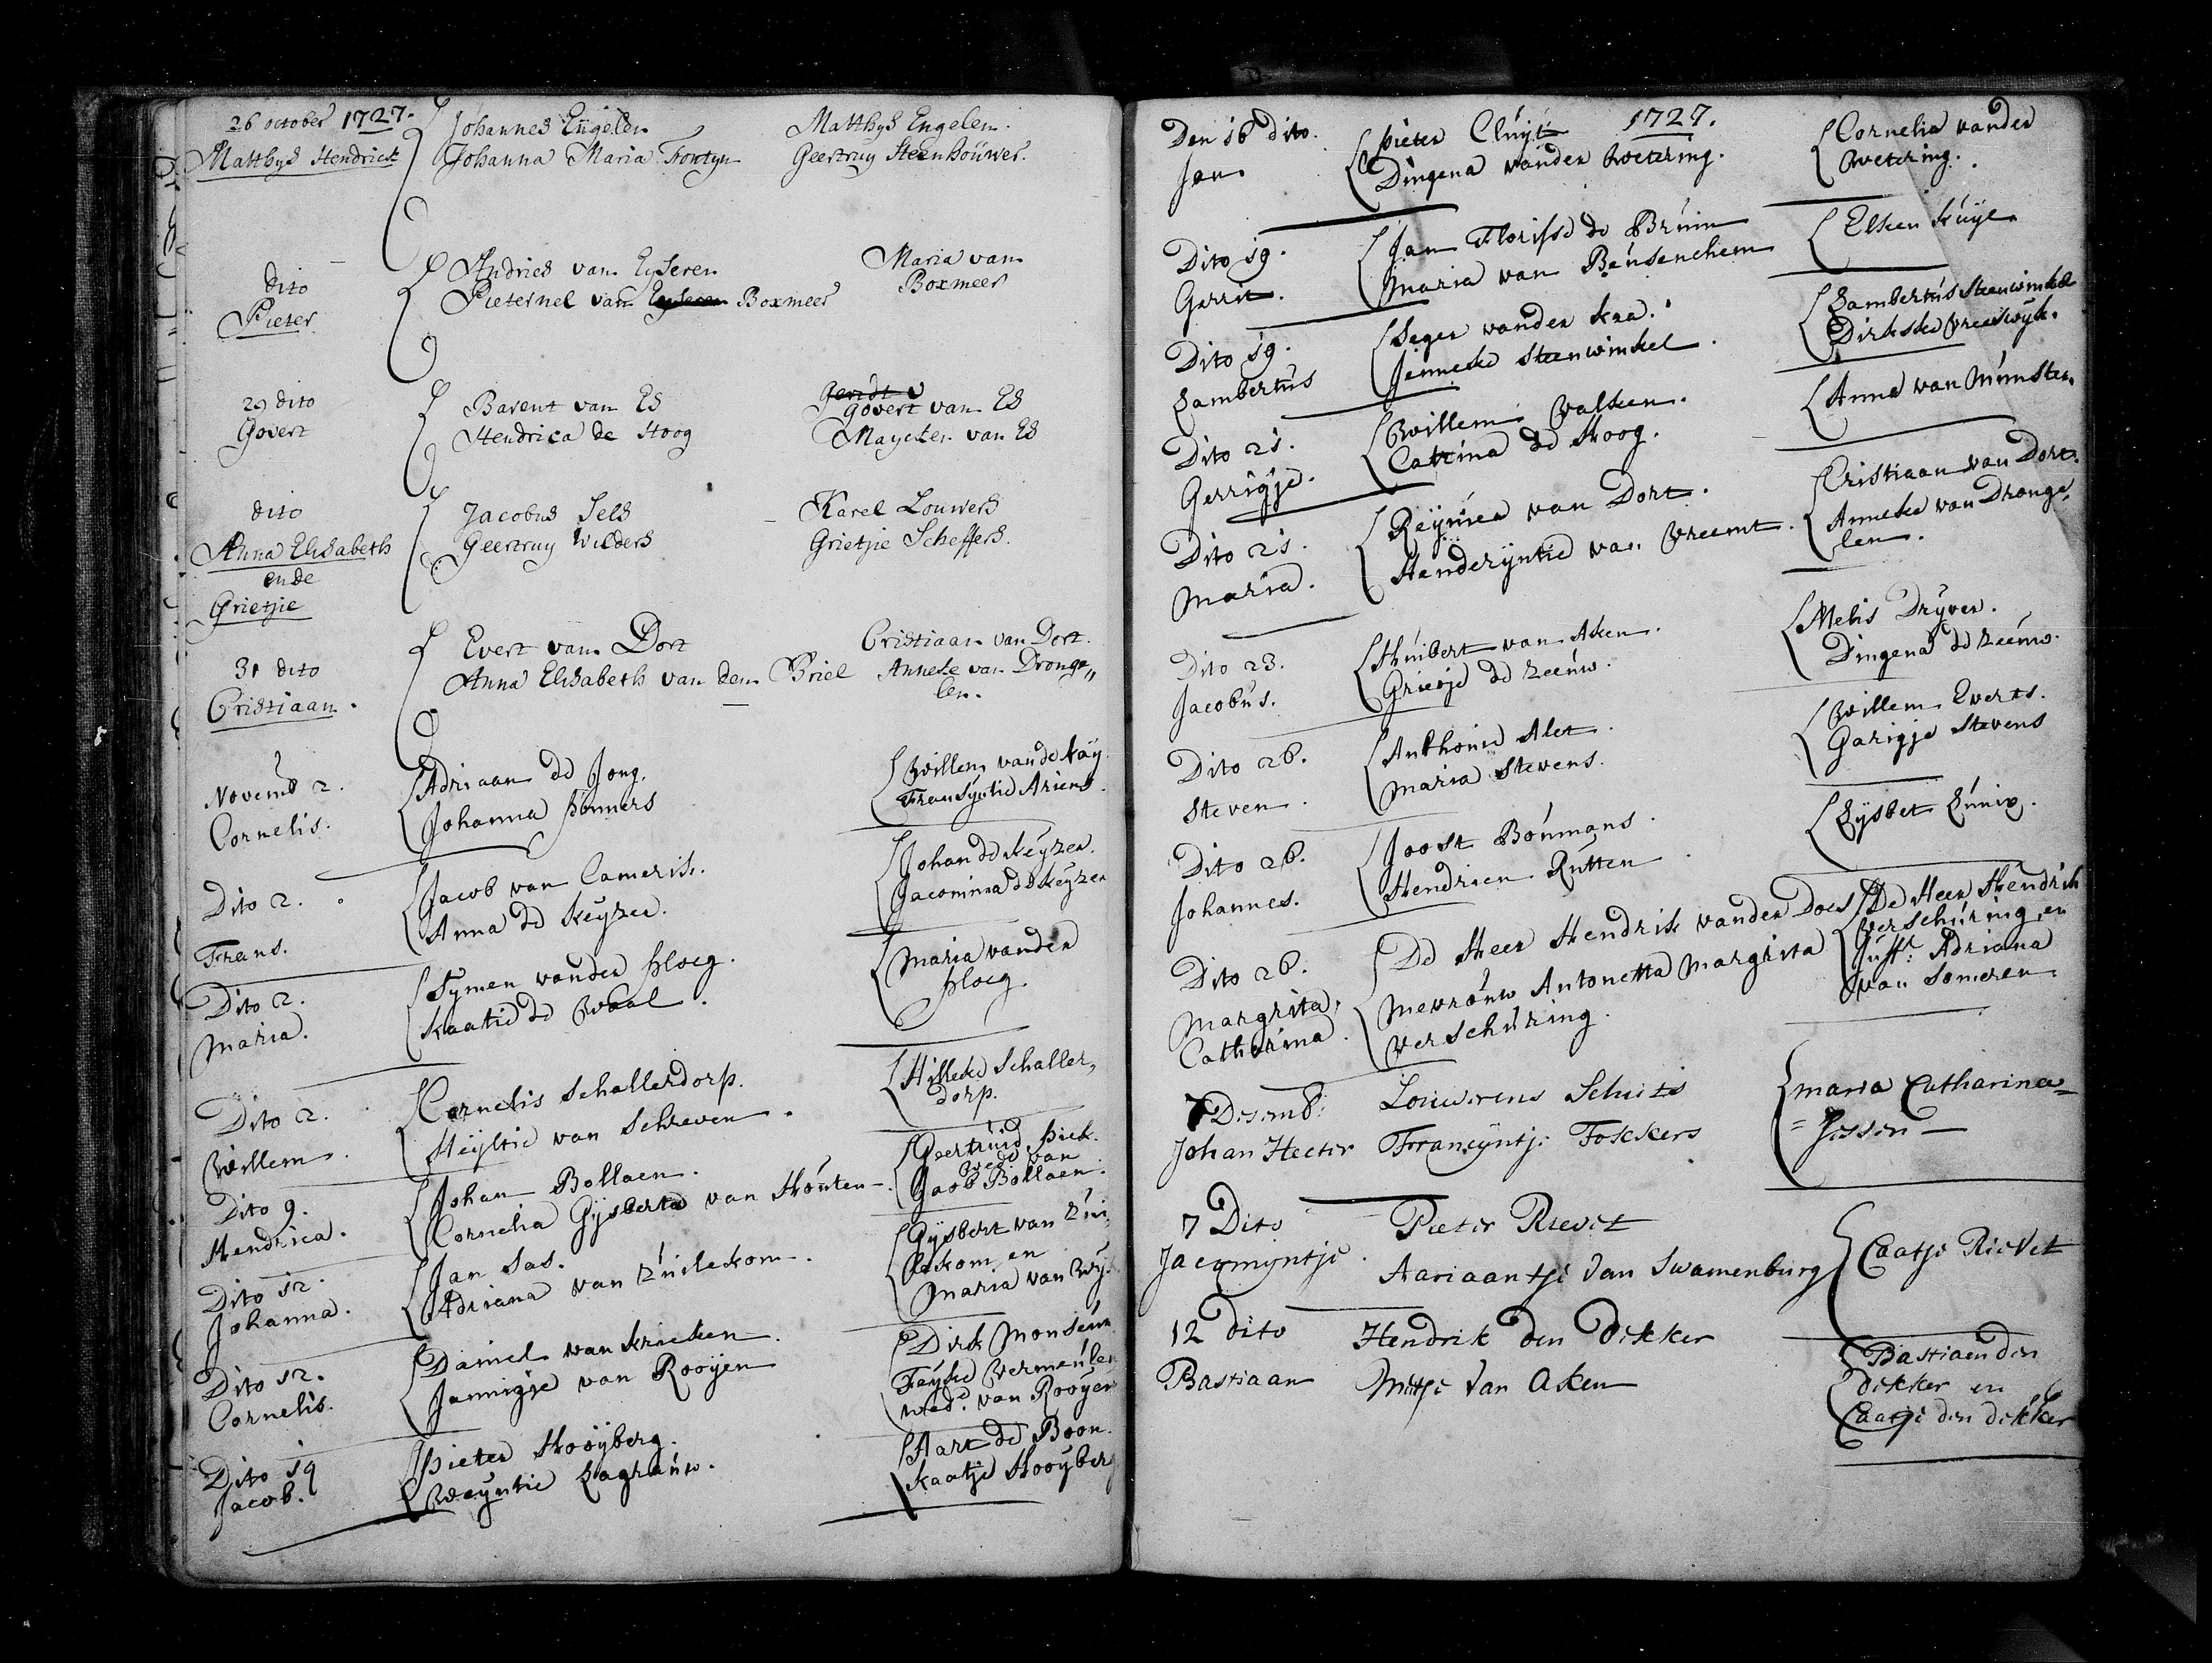 26 october 1727.
Matthys Hendrick
Johannes Engelen
Johanna Maria Fontyn
Matthys Engelen.
Geertruy Steenhouwer.
dito
Pieter
Andries van Eyseren
Pieternel van Eyseren Boxmeer
Maria van
Boxmeer
29 dito
Govert
Barent van Es
Hendrica de Hoog
Geridt v
Govert van Es
Mayeken van Es
dito
Anna Elisabeth
ende
Grietjie
Jacobus Sels
Geertruy Wilders
Karel Louwers
Grietjie Scheffers.
31 dito
Cristiaan.
Evert van Dort
Anna Elisabeth van den Briel
Cristiaan van Dort.
Anneke van Dronge„
len.
Novemb 2.
Cornelis.
Adriaan de Jong.
Johanna ponners
Willem vande kaÿ.
Fransÿntie Ariens.
Dito 2.
Frans.
Jacob van Camerik.
Anna de keÿzer.
Johan de keÿzer.
Jacomina de keÿzer
Dito 2.
Maria.
Sÿmen vander ploeg.
Kaatie de Waal.
Maria vander
ploeg.
Dito 2.
Willem.
Cornelis Schallerdorp.
Heÿltie van Schreven.
Hilleke Schaller„
dorp.
Dito 9.
Hendrica.
Johan Bollaen.
Cornelia Gÿsberta van Houten.
Geertruid piek.
Wed van
Jacob Bollaen.
Dito 12.
Johanna.
Jan Sas.
Adriana van Zuilekom.
Gÿsbert van Zui„
lekom en
Maria van Wÿk
Dito 12.
Cornelis.
Daniel van krieken.
Jannigje van Rooÿen
Dirk Monseur
Feÿke Vermeulen
wed: van Rooÿen
Dito 19
Jacob.
Pieter Hooÿberg.
Weÿntie Lagrauw.
Aart de Boon.
Kaatje Hooÿberg
1727.
Den 16 dito.
Jan
Pieter Cluÿt
Dingena vander Wetering.
Cornelia vander
Wetering.
Dito 19.
Gerrit.
Jan Florisse de Bruin
Maria van Beusenchem
Elken kuijl.
Dito 19.
Lambertus
Seger vander kra.
Jenneke Steenwinkel.
Lambertus Steenwinkel
Dirkske Vreeswÿk.
Dito 21.
Gerrigje.
Willem Valken.
Catrina de Hoog.
Anna van Munster.
Dito 21.
Maria.
Reÿnier van Dort.
Henderÿntie van Vreemt.
Cristiaan van Dort.
Anneke van Dronge„
len.
Dito 23.
Jacobus.
Huibert van Aken.
Grietje de Zeeuw.
Melis Drÿver.
Dingena de Zeeuw.
Dito 26.
Steven.
Anthonie Alet.
Maria Stevens.
Willem Everts.
Garigje Stevens
Dito 26.
Johannes.
Joost Boumans.
Hendrien Rutten.
Lÿsbet Lunix.
Dito 26.
Margrita,
Catharina.
De Heer Hendrik vander Does
Mevrouw Antonetta Margrita
Verschuring.
De Heer Hendrik
Verschuring, en
Juffr: Adriana
van Someren.
7 Desemb:
Johan Hector
Louwrens Schuts
Francÿntje Fokkers
Maria Catharina
= Jessen —
7 Dito
Jacomyntje.
Pieter Rievet
Aariaantje van Swamenburg
Caatje Rievet
12 dito
Bastiaan
Hendrik den Dekker
Mitje van Aken
Bastiaen den
dekker en
Caatje den dekker